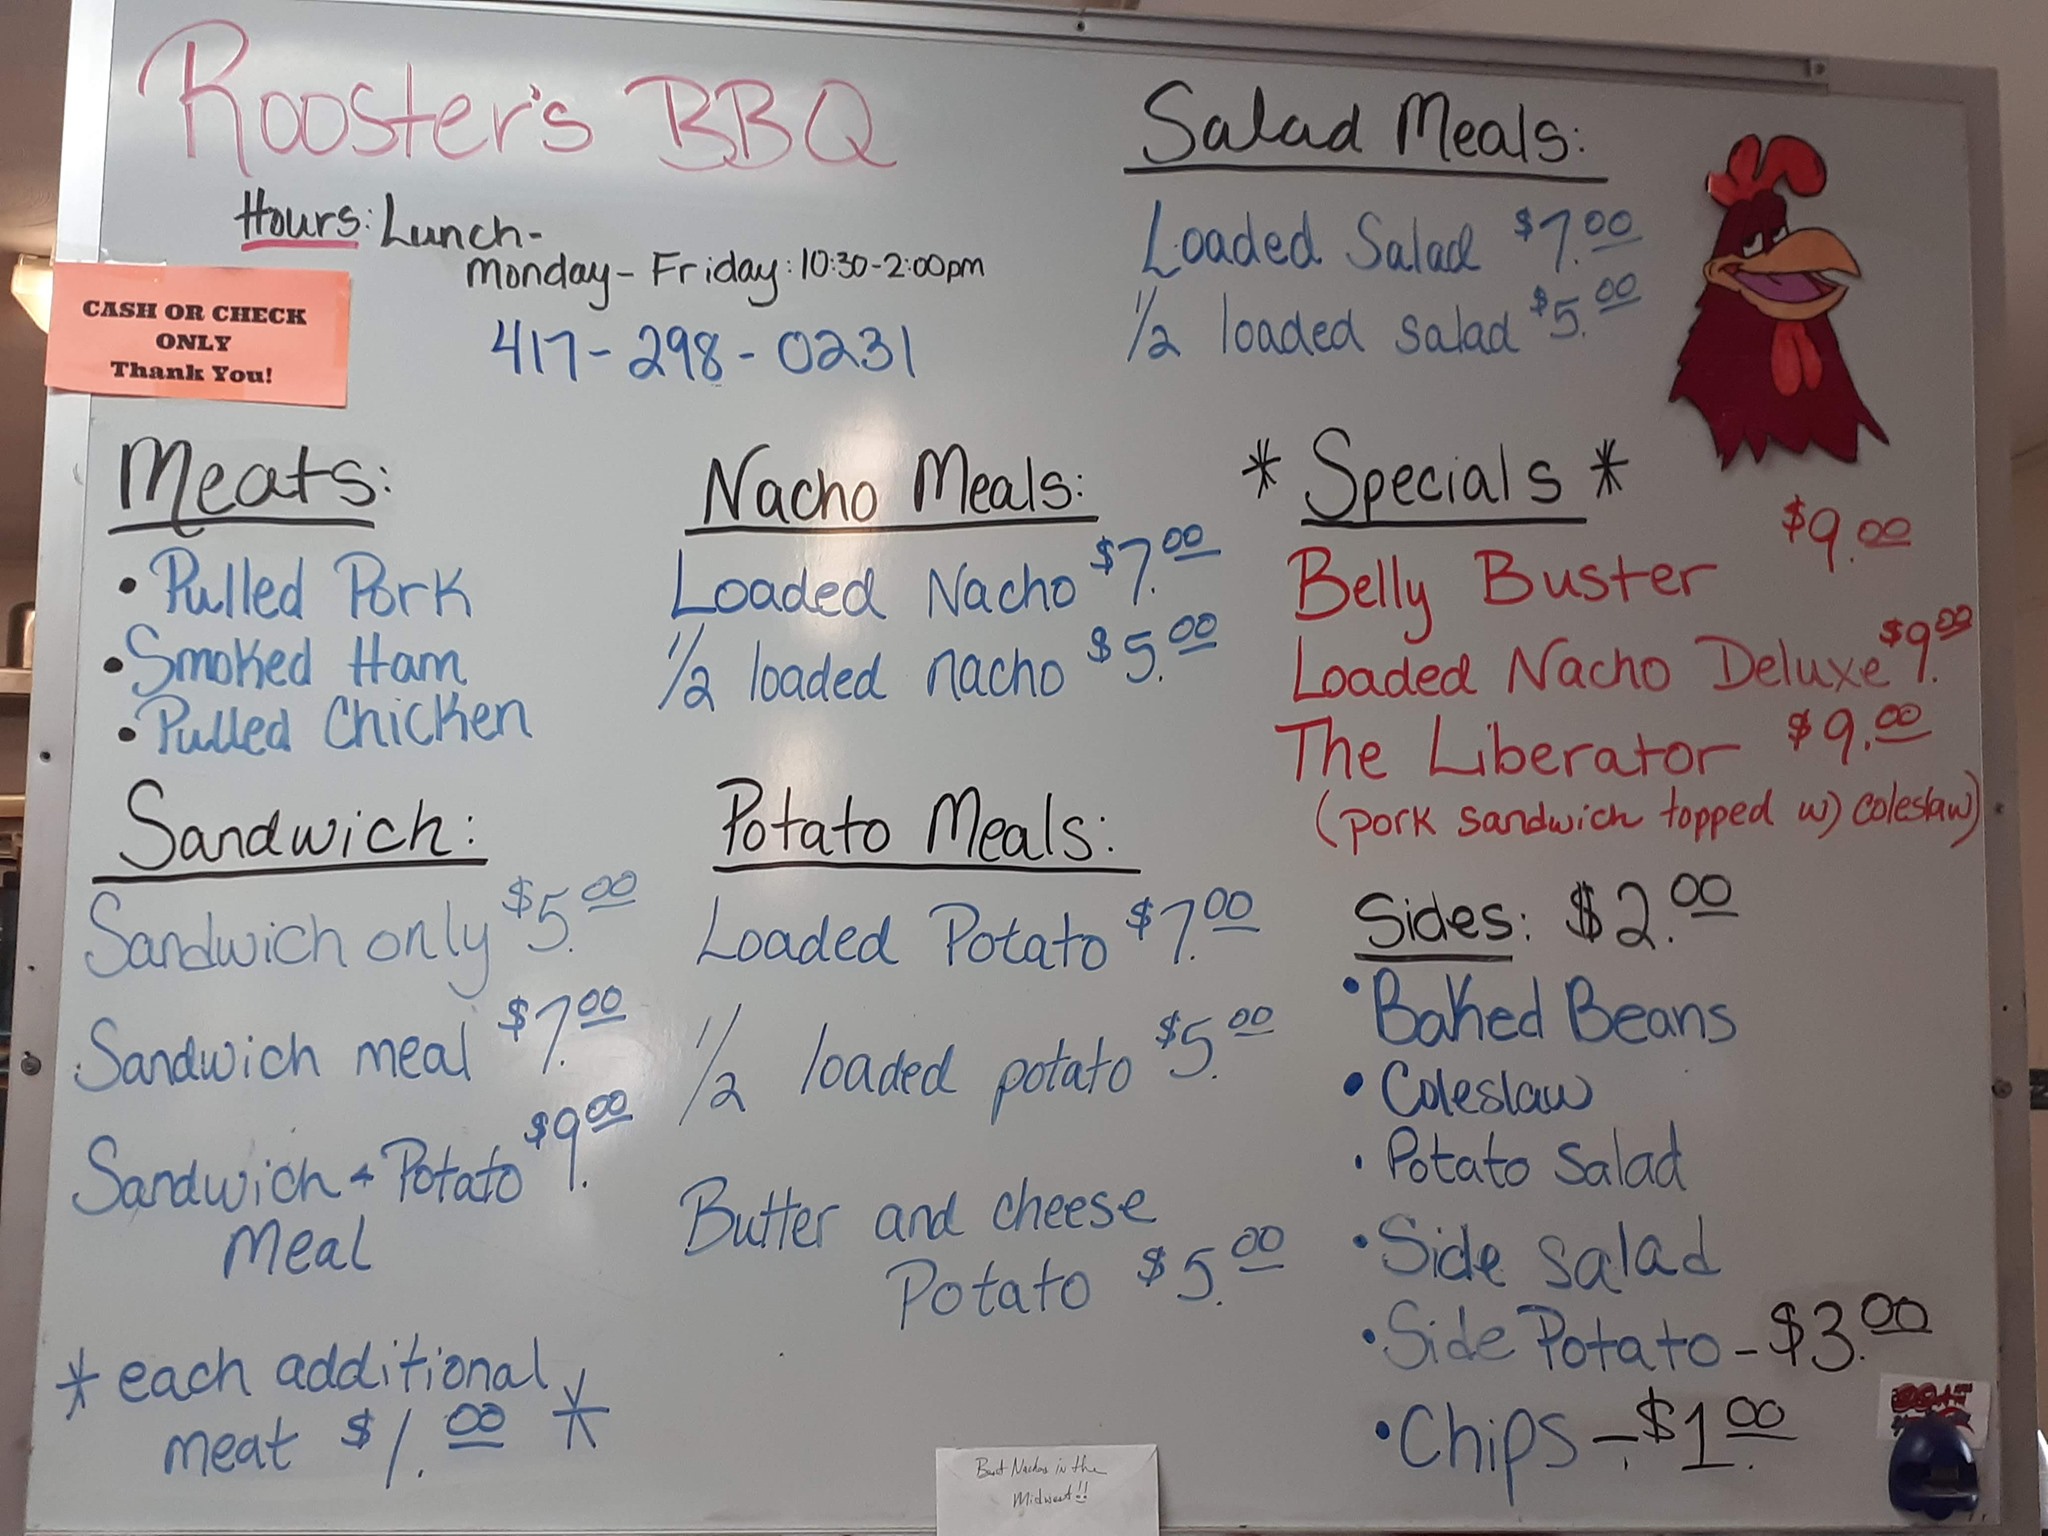 Rooster's BBQ
Hours: Lunch-
Monday-Friday: 10:30-2:00pm
417-298-0231
CASH OR CHECK
ONLY
Thank You!
Salad Meals:
Loaded Salad $7.00
1/2 loaded salad $5.00
Meats:
• Pulled Pork
• Smoked Ham
• Pulled Chicken
Nacho Meals:
Loaded Nacho $7.00
1/2 loaded nacho $5.00
* Specials *
Belly Buster $9.00
Loaded Nacho Deluxe $9.00
The Liberator $9.00
(pork sandwich topped w) coleslaw)
Sandwich:
Sandwich only $5.00
Sandwich meal $7.00
Sandwich + Potato $9.00
Meal
* each additional
meat $1.00 *
Potato Meals:
Loaded Potato $7.00
1/2 loaded potato $5.00
Butter and cheese
Potato $5.00
Sides: $2.00
• Baked Beans
• Coleslaw
• Potato Salad
• Side Salad
• Side Potato - $3.00
• Chips - $1.00
Best Nachos in the
Midwest!!